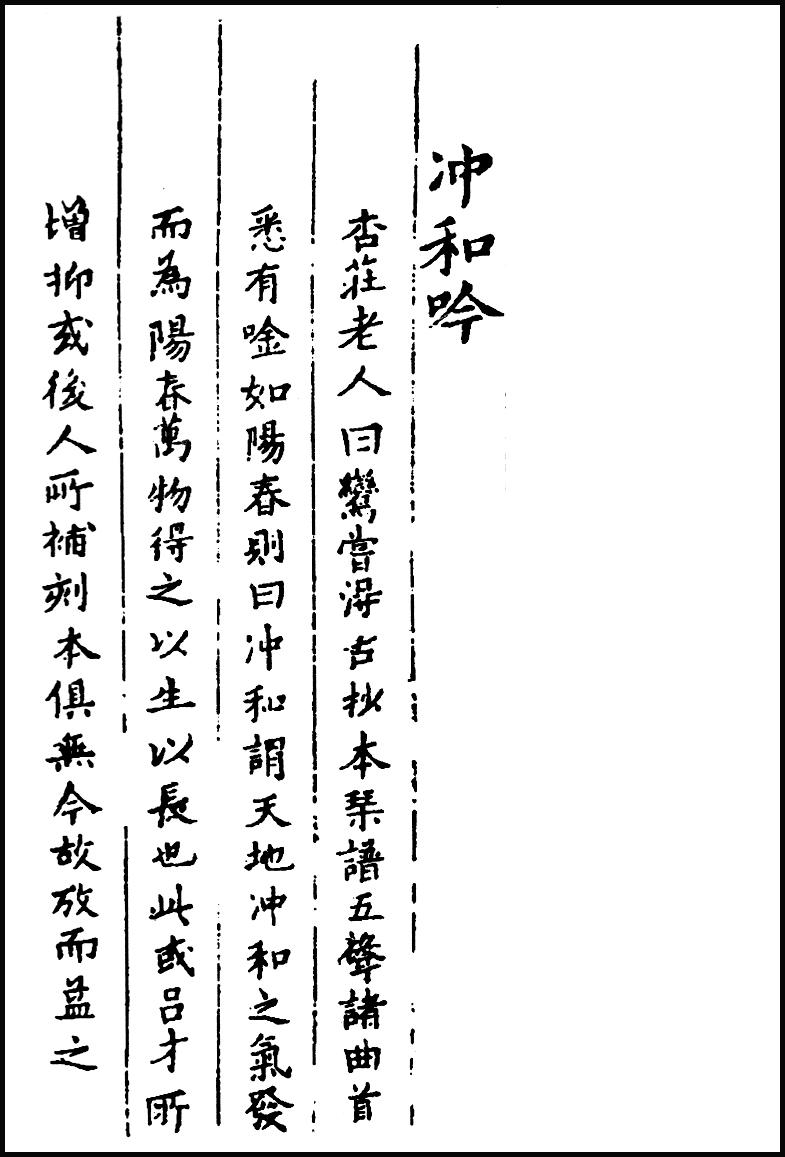 冲和吟
杏莊老人曰鸞嘗得古抄本琹譜五聲諸曲首
悉有唫如陽春則曰冲和謂天地冲和之氣發
而為陽春萬物得之以生以長也此或吕才所
增抑或後人所補刻本俱無今故攷而益之